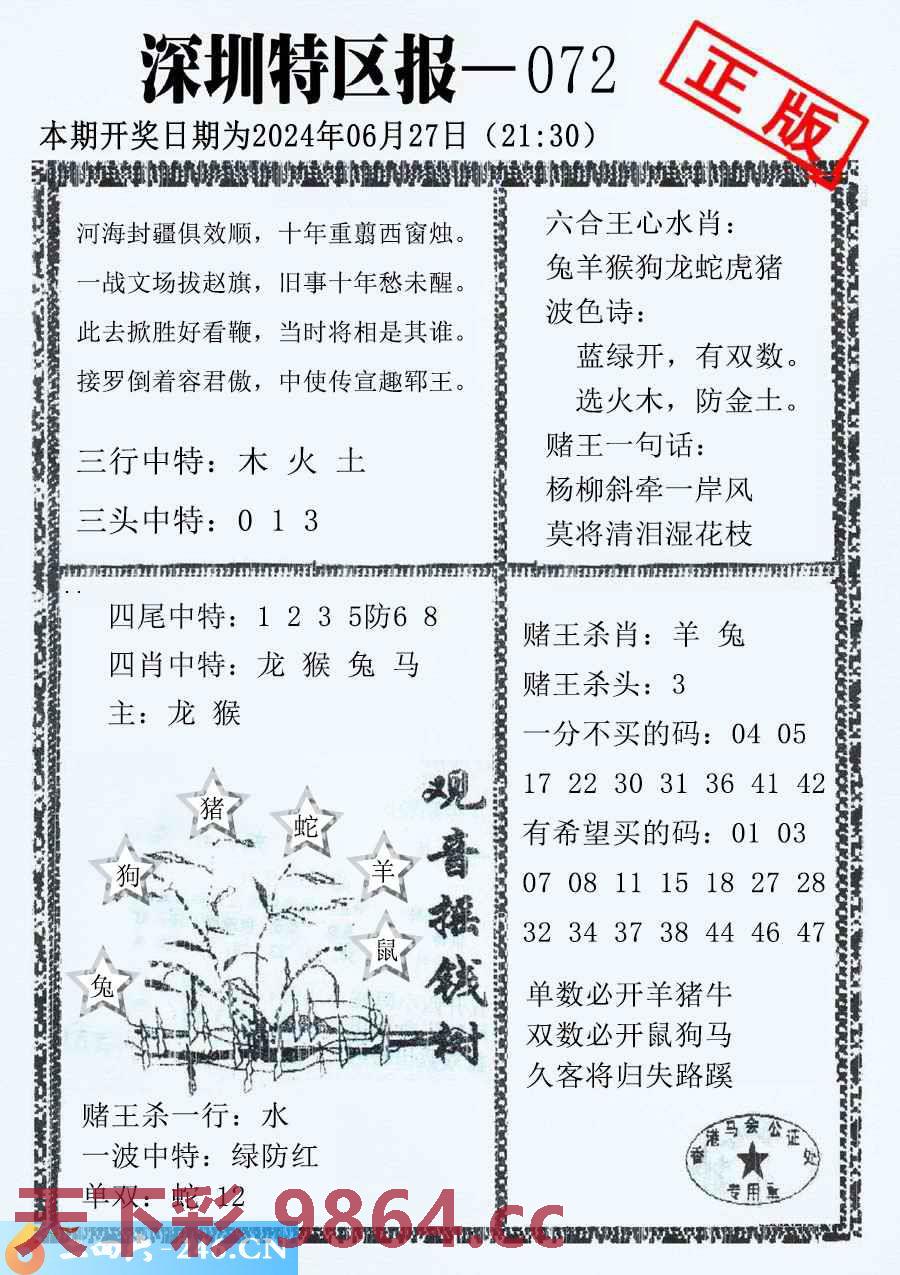 深圳特区报—072
正版
本期开奖日期为2024年06月27日（21:30）
河海封疆俱效顺，十年重翦西窗烛。
一战文场拔赵旗，旧事十年愁未醒。
此去掀胜好看鞭，当时将相是其谁。
接罗倒着容君傲，中使传宣趣郓王。
三行中特：木 火 土
三头中特：0 1 3
六合王心水肖：
兔羊猴狗龙蛇虎猪
波色诗：
蓝绿开，有双数。
选火木，防金土。
赌王一句话：
杨柳斜牵一岸风
莫将清泪湿花枝
四尾中特：1 2 3 5防6 8
四肖中特：龙 猴 兔 马
主：龙 猴
猪
蛇
狗
羊
鼠
兔
观音摇钱树
赌王杀一行：水
一波中特：绿防红
单双：蛇 12
赌王杀肖：羊 兔
赌王杀头：3
一分不买的码：04 05
17 22 30 31 36 41 42
有希望买的码：01 03
07 08 11 15 18 27 28
32 34 37 38 44 46 47
单数必开羊猪牛
双数必开鼠狗马
久客将归失路蹊
香港马会公证处
专用章
天下彩 9864.cc